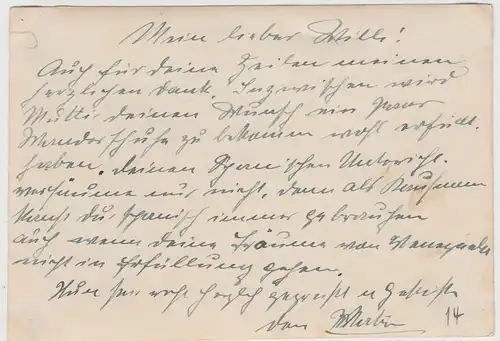 Mein lieber Willi!
Auch für deine Zeilen meinen
herzlichen Dank. Inzwischen wird
Mutti deinen Wunsch ein Paar
Wanderschuhe zu bekommen wohl erfüllt
haben. Deinen Spanischen Unterricht
versäume nur nicht, denn als Kaufmann
kannst du spanisch immer gebrauchen
auch wenn deine Träume von
nicht in Erfüllung gehen.
Nun sei recht herzlich gegrüsst u
von
14